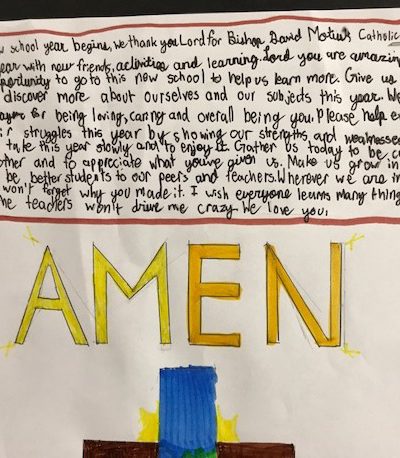 school year begins, we thank you Lord for Bishop David Motiuk Catholic
with new friends, activities and learning. Lord you are amazing
opportunity to go to this new school to help us learn more. Give us
discover more about ourselves and our subjects this year. We
for being loving, caring and overall being you. Please help
struggles this year by showing our strengths and weaknesses
take this year slowly and to enjoy it. Gather us today to be
other and to appreciate what you've given us. Make us grow in
be better students to our peers and teachers. Wherever we are
won't forget why you made it. I wish everyone learns many thing
teachers won't drive me crazy. We love you,
AMEN